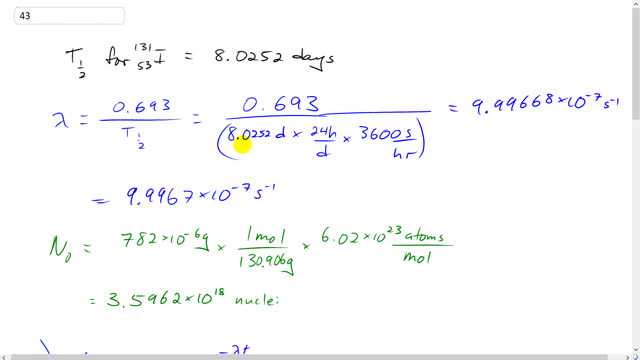 43
T½ for ¹³¹₅₃I = 8.0252 days
λ = 0.693 / T½ = 0.693 / (8.0252 d × 24h/d × 3600s/hr) = 9.99668 × 10⁻⁷ s⁻¹
= 9.9967 × 10⁻⁷ s⁻¹
N₀ = 782 × 10⁻⁶g × 1 mol / 130.906g × 6.02 × 10²³ atoms / mol
= 3.5962 × 10¹⁸ nuclei
-λt